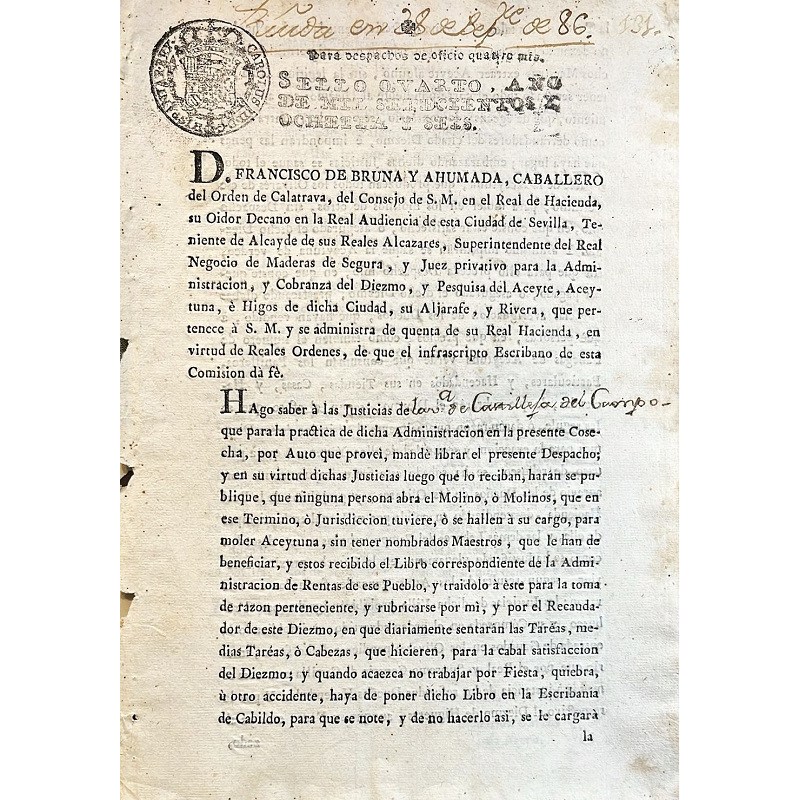 en 28 de Sep.re de 86. 131.
Para despachos de oficio quatro mrs.
SELLO QVARTO, AÑO
DE MIL SETECIENTOS Y
OCHENTA Y SEIS.
CAROLUS III D. G. HISP
D. FRANCISCO DE BRUNA Y AHUMADA, CABALLERO
del Orden de Calatrava, del Consejo de S. M. en el Real de Hacienda,
su Oidor Decano en la Real Audiencia de esta Ciudad de Sevilla, Te-
niente de Alcayde de sus Reales Alcazares, Superintendente del Real
Negocio de Maderas de Segura, y Juez privativo para la Admi-
nistracion, y Cobranza del Diezmo, y Pesquisa del Aceyte, Acey-
tuna, è Higos de dicha Ciudad, su Aljarafe, y Rivera, que per-
tenece à S. M. y se administra de quenta de su Real Hacienda, en
virtud de Reales Ordenes, de que el infrascripto Escribano de esta
Comision dà fè.
HAgo saber à las Justicias de la v.a de Castilleja del Campo-
que para la practica de dicha Administracion en la presente Cose-
cha, por Auto que proveì, mandè librar el presente Despacho;
y en su virtud dichas Justicias luego que lo reciban, haràn se pu-
blique, que ninguna persona abra el Molino, ò Molinos, que en
ese Termino, ò Jurisdiccion tuviere, ò se hallen à su cargo, para
moler Aceytuna, sin tener nombrados Maestros, que le han de
beneficiar, y estos recibido el Libro correspondiente de la Admi-
nistracion de Rentas de ese Pueblo, y traidolo à èste para la toma
de razon perteneciente, y rubricarse por mì, y por el Recauda-
dor de este Diezmo, en que diariamente sentaràn las Taréas, me-
dias Taréas, ò Cabezas, que hicieren, para la cabal satisfaccion
del Diezmo; y quando acaezca no trabajar por Fiesta, quiebra,
ù otro accidente, haya de poner dicho Libro en la Escribania
de Cabildo, para que se note, y de no hacerlo asi, se le cargarà
la